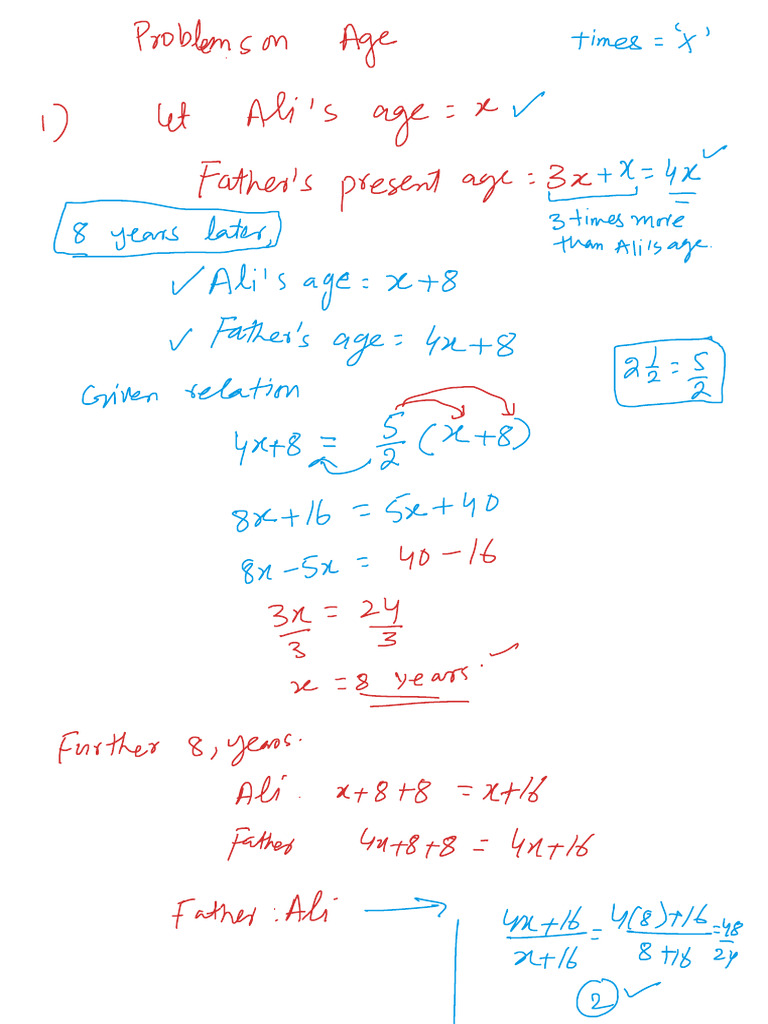 Problems on Age
times = 'x'
1) Let Ali's age = x ✓
Father's present age = 3x + x = 4x ✓
3 times more
than Ali's age.
8 years later,
✓ Ali's age = x+8
✓ Father's age = 4x+8
2 1/2 = 5/2
Given relation
4x+8 = 5/2 (x+8)
8x+16 = 5x+40
8x-5x = 40-16
3x/3 = 24/3
x = 8 years. ✓
Further 8, years.
Ali. x+8+8 = x+16
Father 4x+8+8 = 4x+16
Father : Ali →
(4x+16)/(x+16) = (4(8)+16)/(8+16) = 48/24
2 ✓